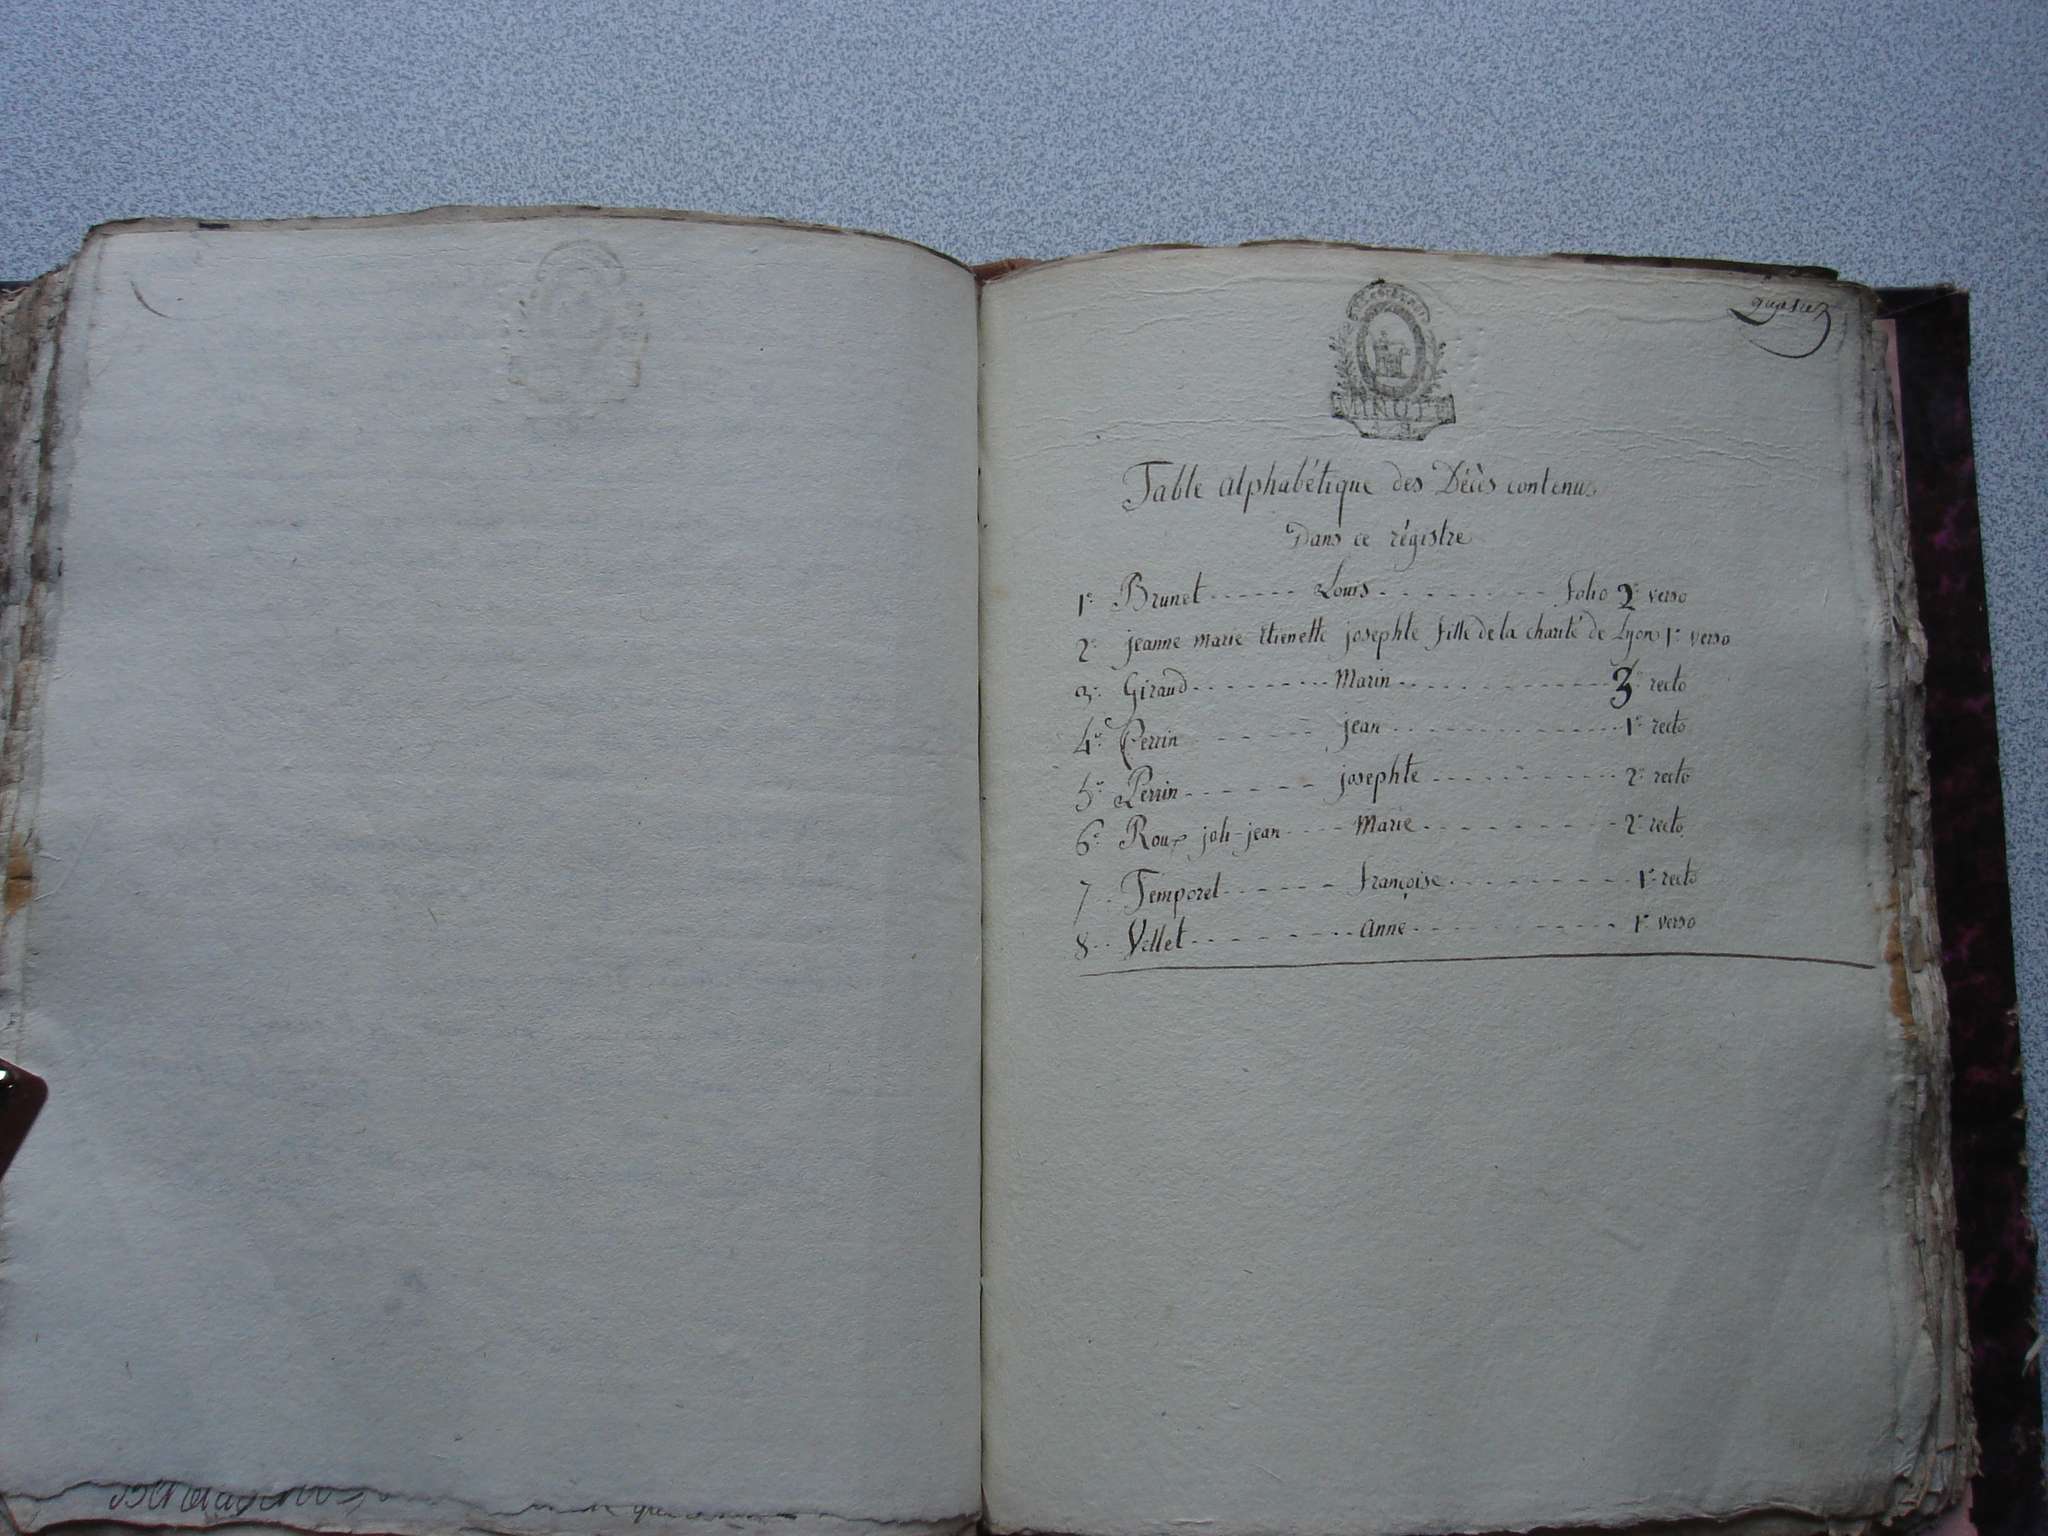 MINUTE
Table alphabétique des Décès contenus
Dans ce régistre
1º Brunet ------ Louis -------- folio 2º verso
2º jeanne marie Etienette josephte fille de la charité de Lyon 1º verso
3º Giraud -------- Marin ----------- 3º recto
4º Perrin ------ jean ------------ 1º recto
5º Perrin ------ josephte ---------- 2º recto
6º Roux joli-jean ---- Marie --------- 2º recto
7 Temporel ------ françoise --------- 1º recto
8 Vellet --------- anne ----------- 1º verso